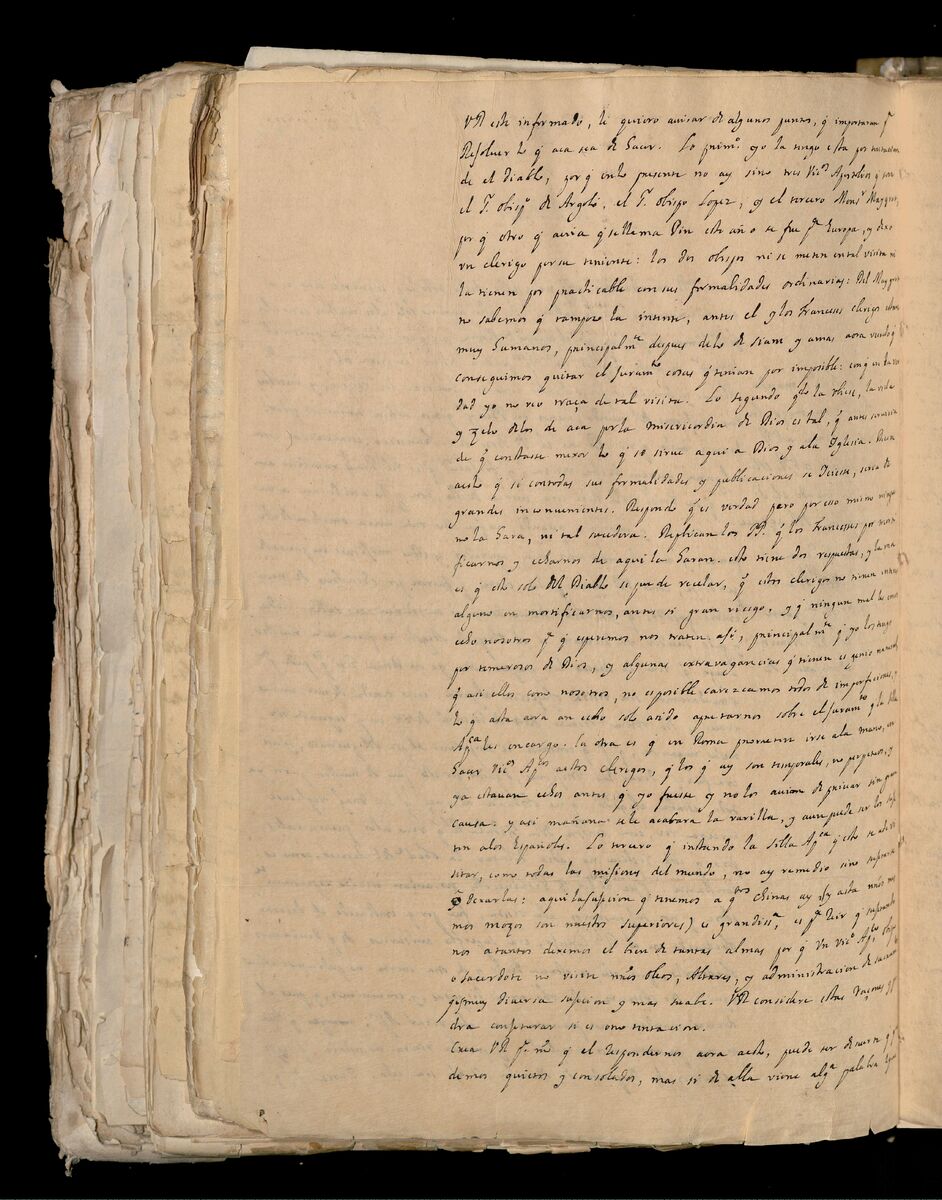 VR este informado, le quiero auisar de algunos puntos, q̃ importaran pª
Resoluer lo q̃ aca sea de hacer. Lo primº yo la tengo esta por tentacion
de el diablo, porq̃ en lo presente no ay sino tres Vicºs Apostolicos q̃ son
el Sr. obispº de Argoli, el Sr. obispo Lopez, y el tercero Monsʳ Maygrot,
por q̃ otro q̃ auia q̃ se llama Pin este año se fue pª Europa, y dexo
vn clerigo por su teniente: los dos obispos ni se meten en tal visita ni
la tienen por practicable con sus formalidades ordinarias: Del Maygrot
no sabemos q̃ tampoco la intente, antes el y los Franceses clerigos estan
muy humanos, principalmte despues de lo de Siam y a mas aora viendo q̃
conseguimos quitar el Juramto cosas q̃ tenian por imposible: conq̃ en la ver
dad yo no veo traça de tal visita. Lo segundo q̃do la vbiese, la vida
y zelo delos de aca por la misericordia de Dios es tal, q̃ antes seruiria
de q̃ constasse mexor lo q̃ se sirue aqui a Dios y ala Iglesia. Dicen
aesto q̃ si con todas sus formalidades y publicaciones se hiciesse, seria de
grandes inconuenientes. Respondo q̃ es verdad pero por esso mismo ninguno
no la hara, ni tal sucedera. Replican los PP. q̃ los Franceses por morti
ficarnos y echarnos de aqui la haran. esto tiene dos respuestas, y la vna
es q̃ esto solo del Diablo se puede recelar, q̃ estos clerigos no tienen interes
alguno en mortificarnos, antes si gran riesgo, y q̃ ningun mal les emos
echo nosotros pª q̃ esperemos nos traten assi, principalmte q̃ yo los tengo
por temerosos de Dios, y algunas extravagancias q̃ tienen es genio natural
q̃ assi ellos como nosotros, no es posible carezcamos todos de imperfecciones, y
lo q̃ asta aora an echo solo a sido apretarnos sobre el Juramto q̃ la Silla
Apca les encargo. la otra es q̃ en Roma prometen irse ala mano, en
hacer Vicºs Apcos aestos clerigos, q̃ los q̃ ay son temporales, no perpetuos, y
ya estauan echos antes q̃ yo fuesse y no los auian de priuar sin gran
causa: y assi mañana se le acabara la varilla, y aun puede ser los
den alos Españoles. Lo tercero q̃ instando la silla Apca q̃ esto se a de vi
sitar, como todas las misiones del mundo, no ay remedio sino
dexarlas: aqui la sujecion q̃ tenemos a qtos chinas ay (y asta nros mis
mos mozos son nuestros superiores) es grandissª, es pª decir q̃ sujetando
nos a tantos dexemos el bien de tantas almas por q̃ Vn vicº Apco, obispo
o sacerdote no visite nros oleos, Altares, y administracion de sacramentos
q̃ es muy diuersa sujecion y mas suabe. VR considere estas raçones y po
dra congeturar si es otro tentacion.
Crea VR Pe. mº q̃ el respondernos aora aesto, puede ser de suerte q̃ q
demos quietos y consolados, mas si de alla viene algª palabra